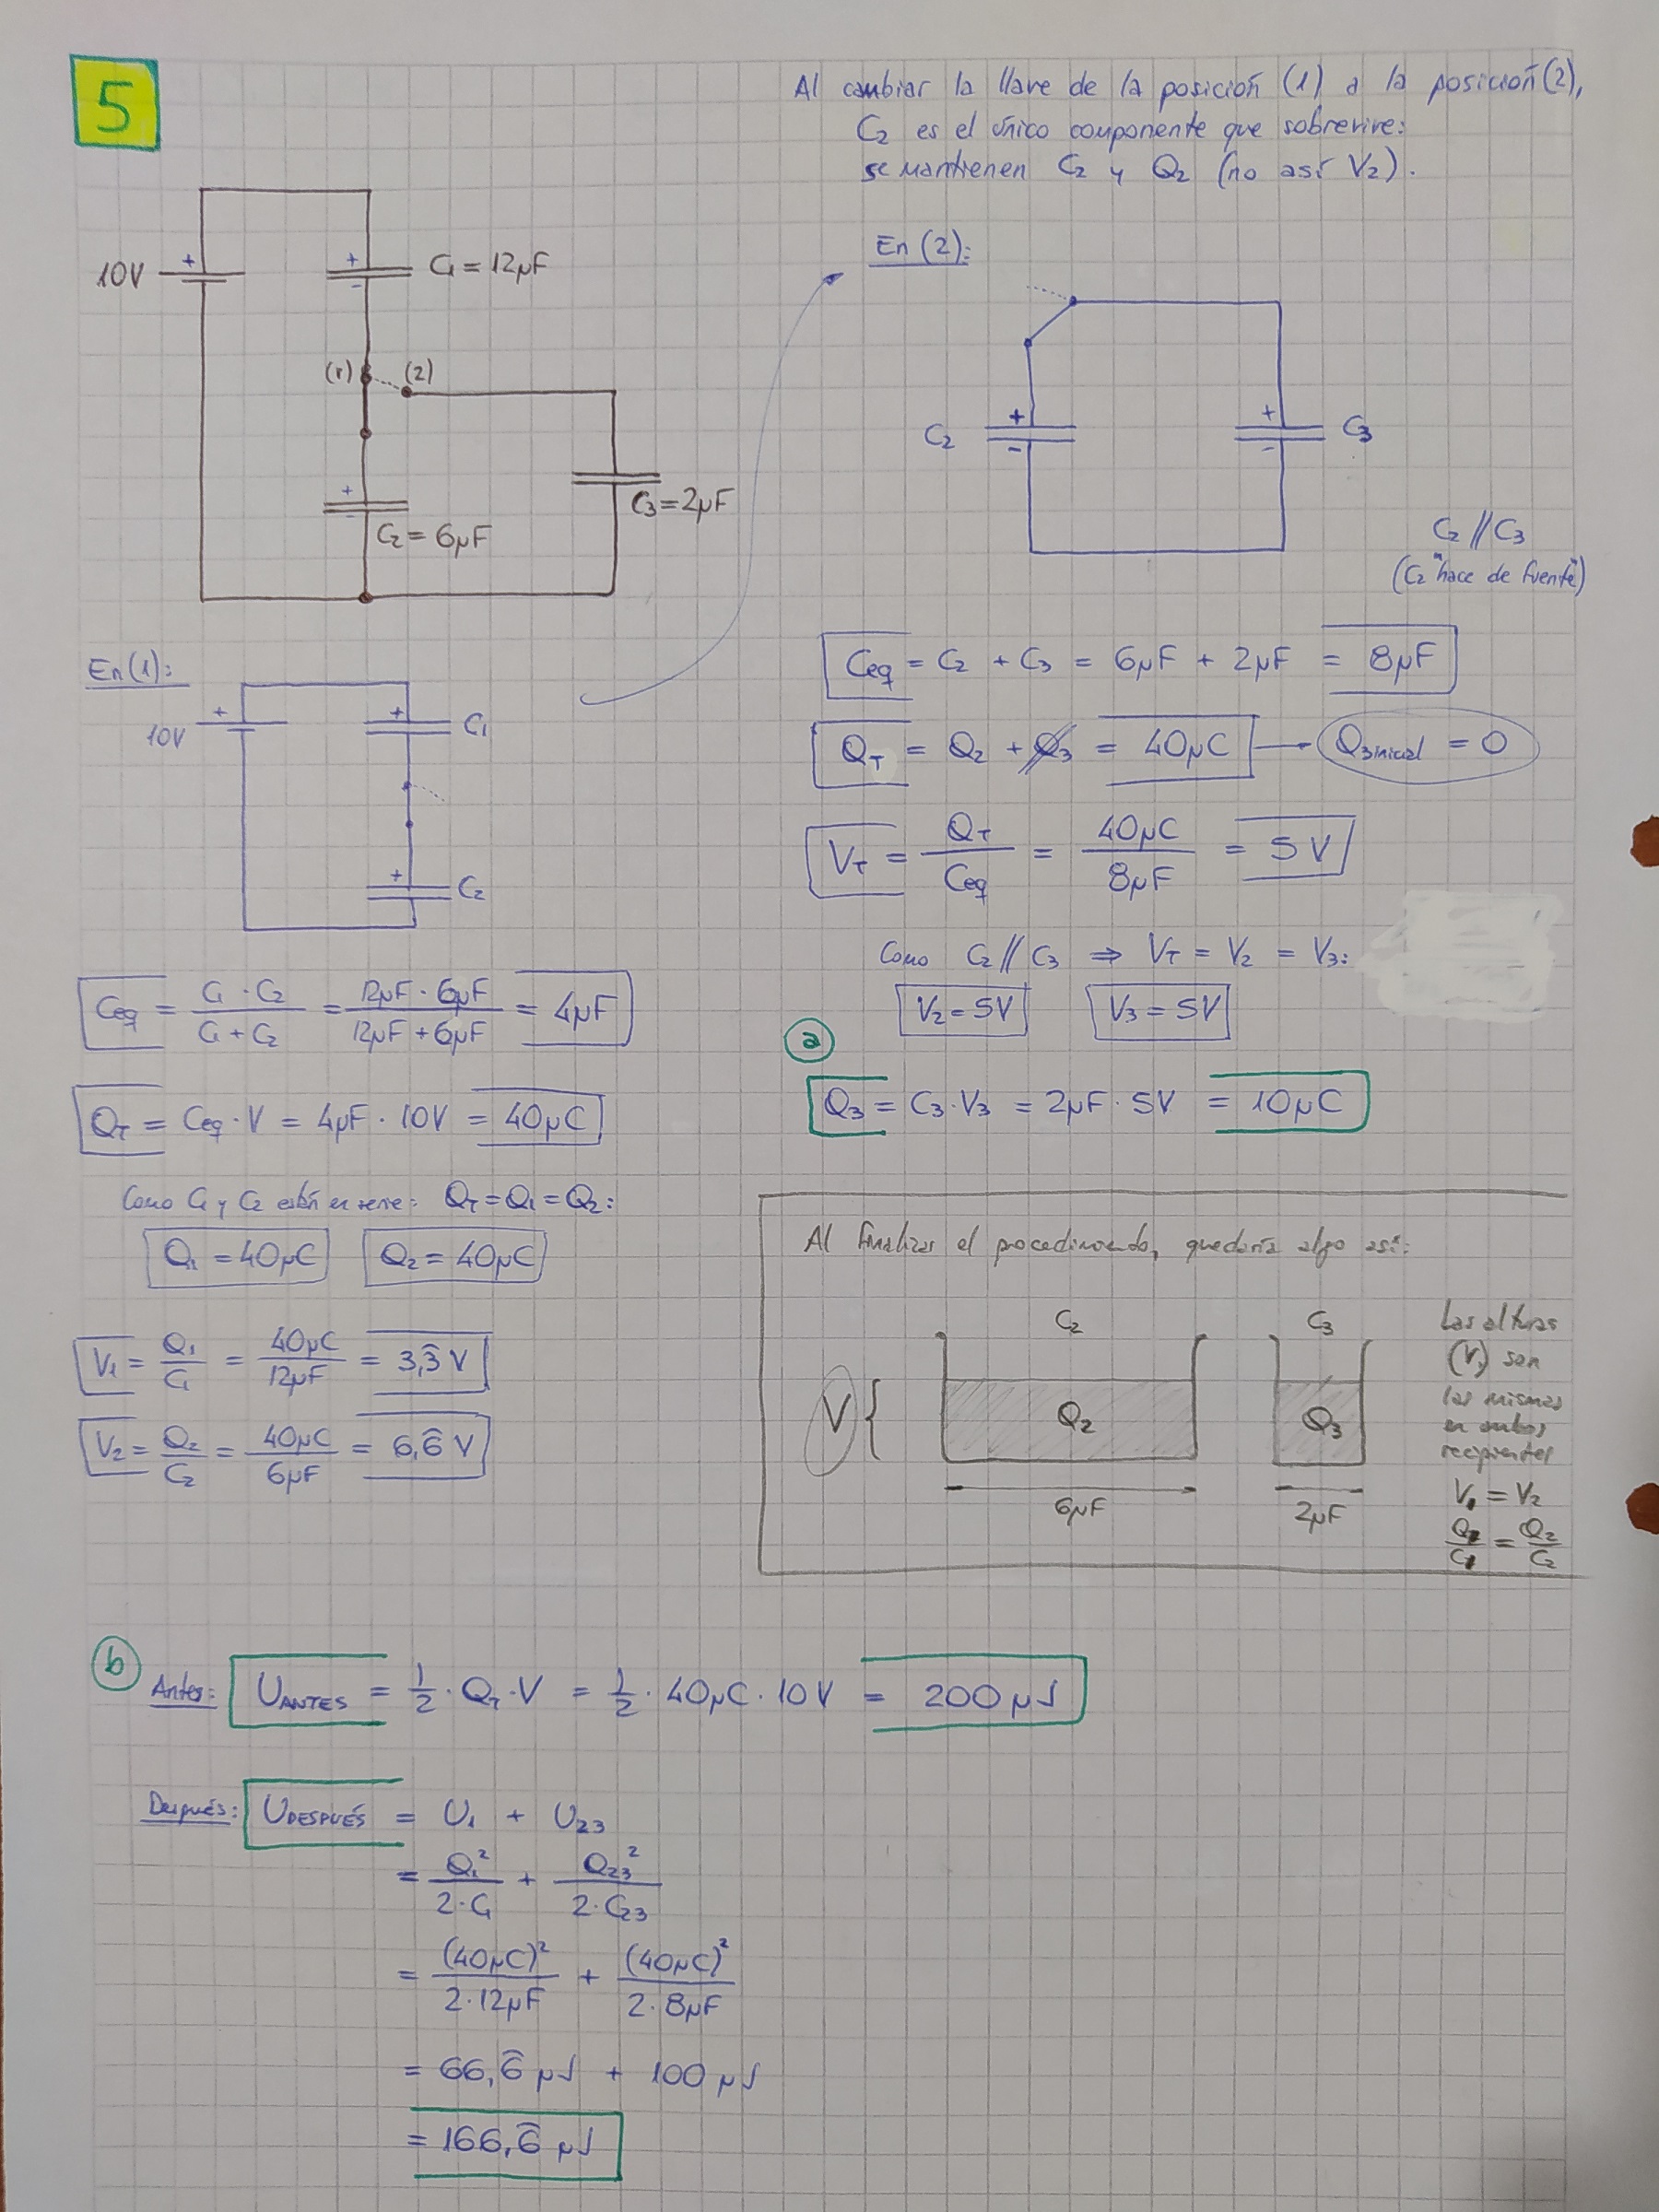 5
10V
+
+
-
C₁ = 12µF
(1)
(2)
+
-
C₂ = 6µF
C₃ = 2µF
En (1):
10V
+
+
C₁
+
C₂
Ceq = C₁ · C₂ / C₁ + C₂ = 12µF · 6µF / 12µF + 6µF = 4µF
Q_T = Ceq · V = 4µF · 10V = 40µC
Como C₁ y C₂ están en serie: Q_T = Q₁ = Q₂:
Q₁ = 40µC
Q₂ = 40µC
V₁ = Q₁ / C₁ = 40µC / 12µF = 3,3̂ V
V₂ = Q₂ / C₂ = 40µC / 6µF = 6,6̂ V
Al cambiar la llave de la posición (1) a la posición (2),
C₂ es el único componente que sobrevive:
se mantienen C₂ y Q₂ (no así V₂).
En (2):
C₂
+
-
+
-
C₃
C₂ // C₃
(C₂ "hace de fuente")
Ceq = C₂ + C₃ = 6µF + 2µF = 8µF
Q_T = Q₂ + Q₃ = 40µC → Q₃inicial = 0
V_T = Q_T / Ceq = 40µC / 8µF = 5V
Como C₂ // C₃ ⇒ V_T = V₂ = V₃:
V₂ = 5V
V₃ = 5V
a
Q₃ = C₃ · V₃ = 2µF · 5V = 10µC
Al finalizar el procedimiento, quedaría algo así:
C₂
C₃
V {
Q₂
Q₃
6µF
2µF
Las alturas
(V) son
las mismas
en ambos
recipientes
V₁ = V₂
Q₁ / C₁ = Q₂ / C₂
b
Antes: U_ANTES = 1/2 · Q_T · V = 1/2 · 40µC · 10V = 200µJ
Después: U_DESPUÉS = U₁ + U₂₃
= Q₁² / 2·C₁ + Q₂₃² / 2·C₂₃
= (40µC)² / 2·12µF + (40µC)² / 2·8µF
= 66,6̂ µJ + 100µJ
= 166,6̂ µJ